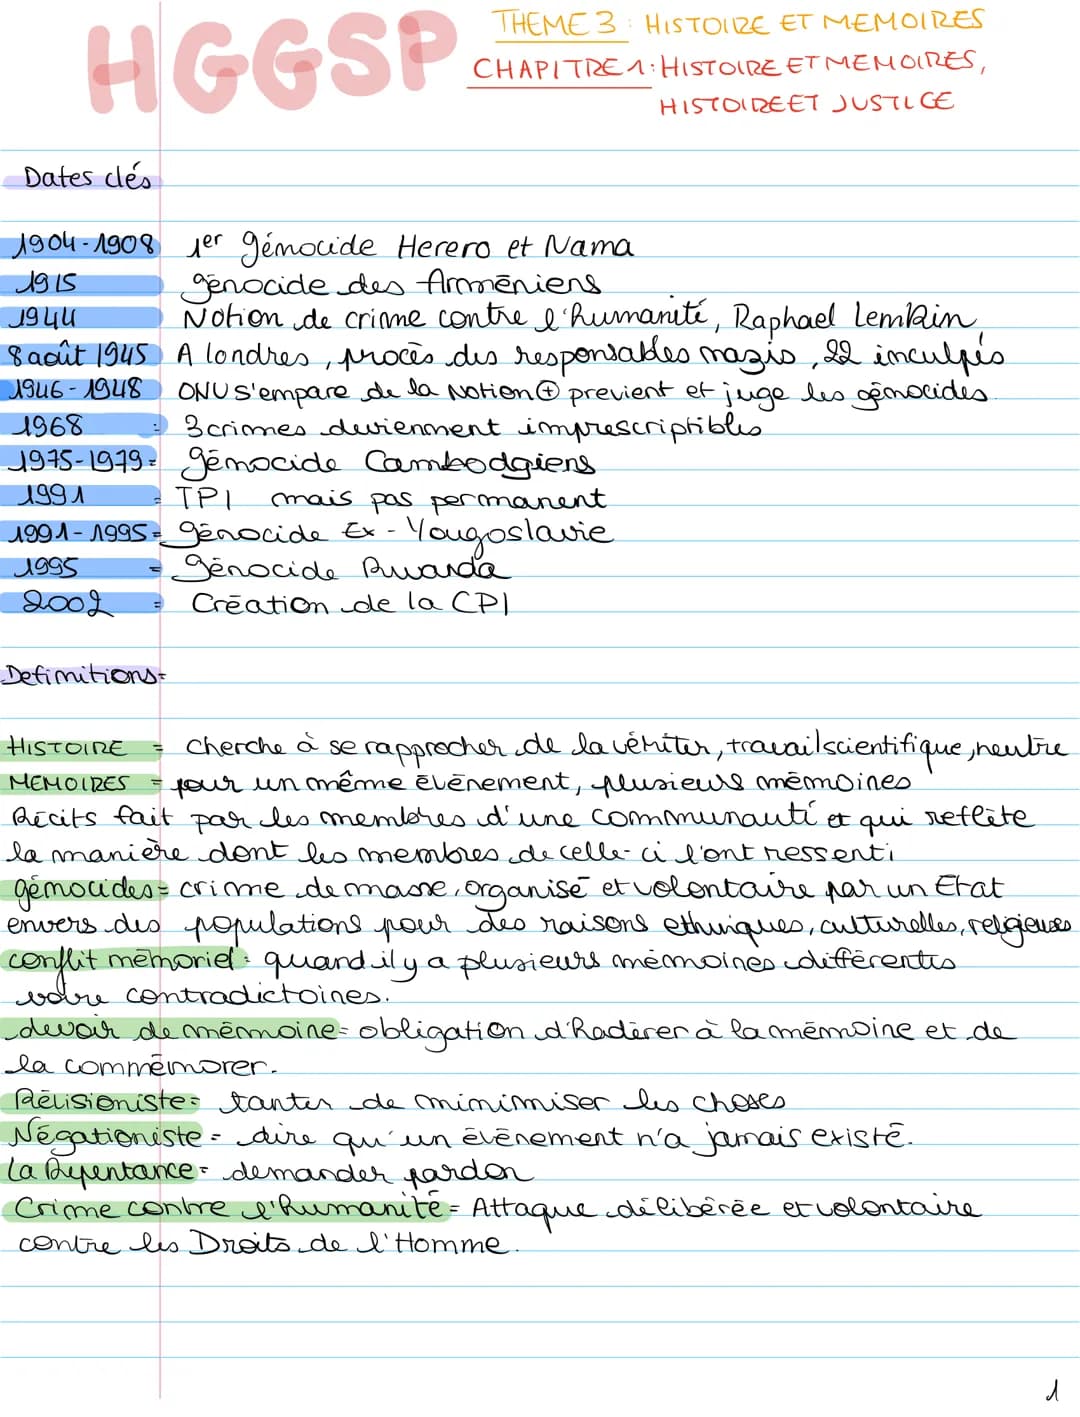 HGGSP
THEME 3 : HISTOIRE ET MEMOIRES
CHAPITRE 1 : HISTOIRE ET MEMOIRES,
HISTOIRE ET JUSTICE
Dates clés
1904-1908 1er génocide Herero et Nama
1915 génocide des Arméniens
1944 Notion de crime contre l'humanité, Raphael Lemkin
8 août 1945 A londres, procès des responsables nazis, 22 inculpés
1946-1948 ONU s'empare de la Notion ⊕ previent et juge les génocides.
1968 : 3 crimes deviennent imprescriptibles
1975-1979 = génocide Cambodgiens
1991 = TPI mais pas permanent
1991-1995 = génocide Ex-Yougoslavie
1995 = génocide Rwanda
2002 = Création de la CPI
Definitions =
HISTOIRE = cherche à se rapprocher de la vériter, travail scientifique, neutre
MEMOIRES = pour un même événement, plusieurs mémoires
Récits fait par les membres d'une communauté et qui reflète
la manière dont les membres de celle-ci l'ont ressenti
génocides = crime de masse, organisé et volontaire par un Etat
envers des populations pour des raisons ethniques, culturelles, religieuses
conflit mémoriel = quand il y a plusieurs mémoires différentes
voire contradictoires.
devoir de mémoire = obligation d'hadérer à la mémoire et de
la commémorer.
Révisioniste = tanter de minimiser les choses
Négationiste = dire qu'un événement n'a jamais existé.
La Repentance = demander pardon
Crime contre l'humanité = Attaque délibérée et volontaire
contre les Droits de l'Homme.
1